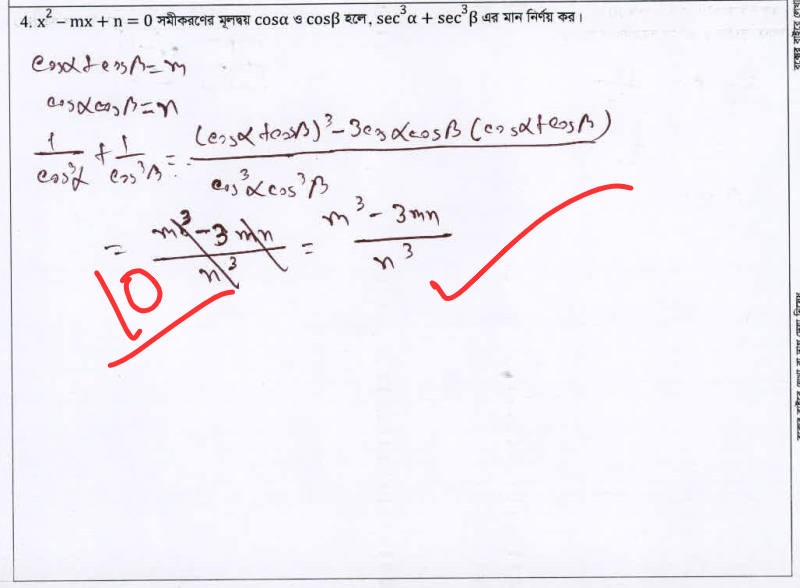 4. x² – mx + n = 0 সমীকরণের মূলদ্বয় cosα ও cosβ হলে, sec³α + sec³β এর মান নির্ণয় কর।
cosα+cosβ=m
cosαcosβ=n
1/cos³α + 1/cos³β = (cosα+cosβ)³-3cosαcosβ(cosα+cosβ)/cos³αcos³β
= m³-3mn/n³ = m³-3mn/n³
10